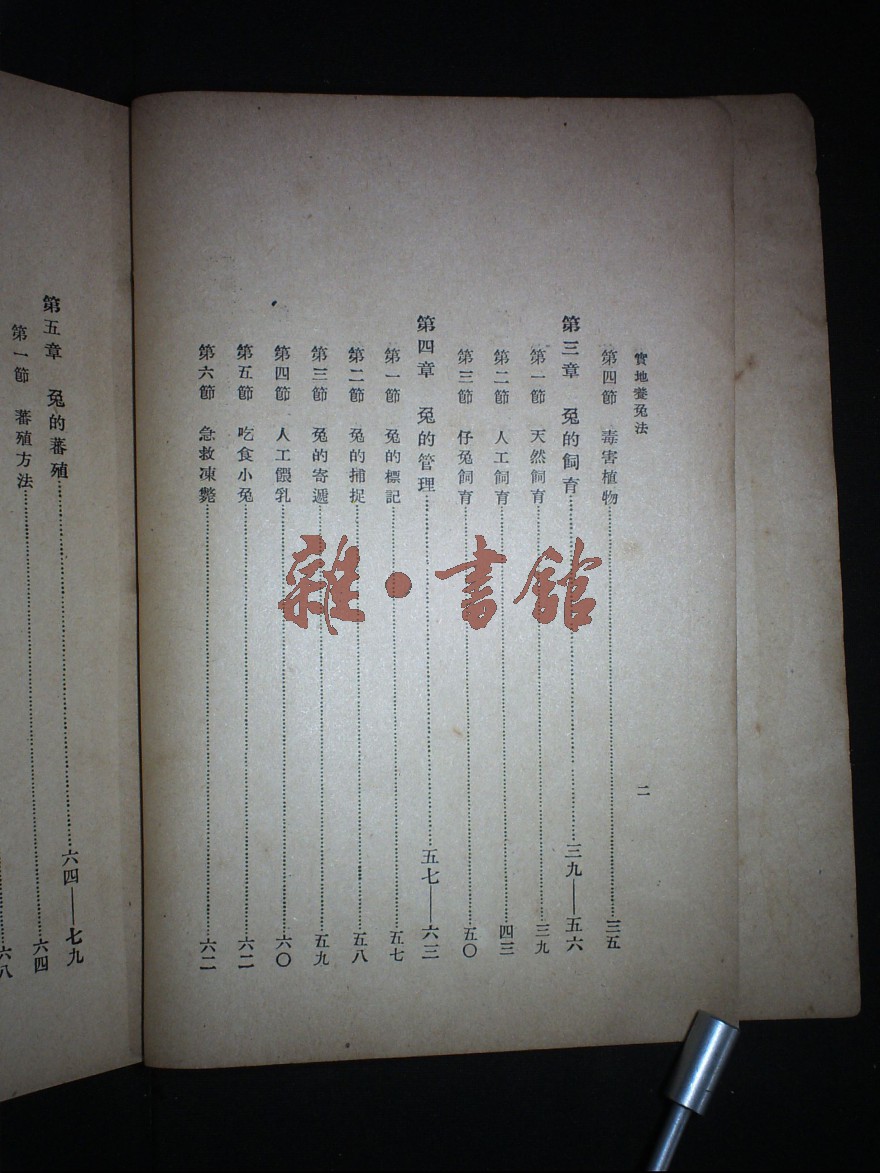 實地養兔法
二
第四節 毒害植物……三五
第三章 兔的飼育……三九——五六
第一節 天然飼育……三九
第二節 人工飼育……四三
第三節 仔兔飼育……五〇
第四章 兔的管理……五七——六三
第一節 兔的標記……五七
第二節 兔的捕捉……五八
第三節 兔的寄遞……五九
第四節 人工餵乳……六〇
第五節 吃食小兔……六二
第六節 急救凍斃……六二
第五章 兔的蕃殖……六四——七九
第一節 蕃殖方法……六四
六八
雜·書館